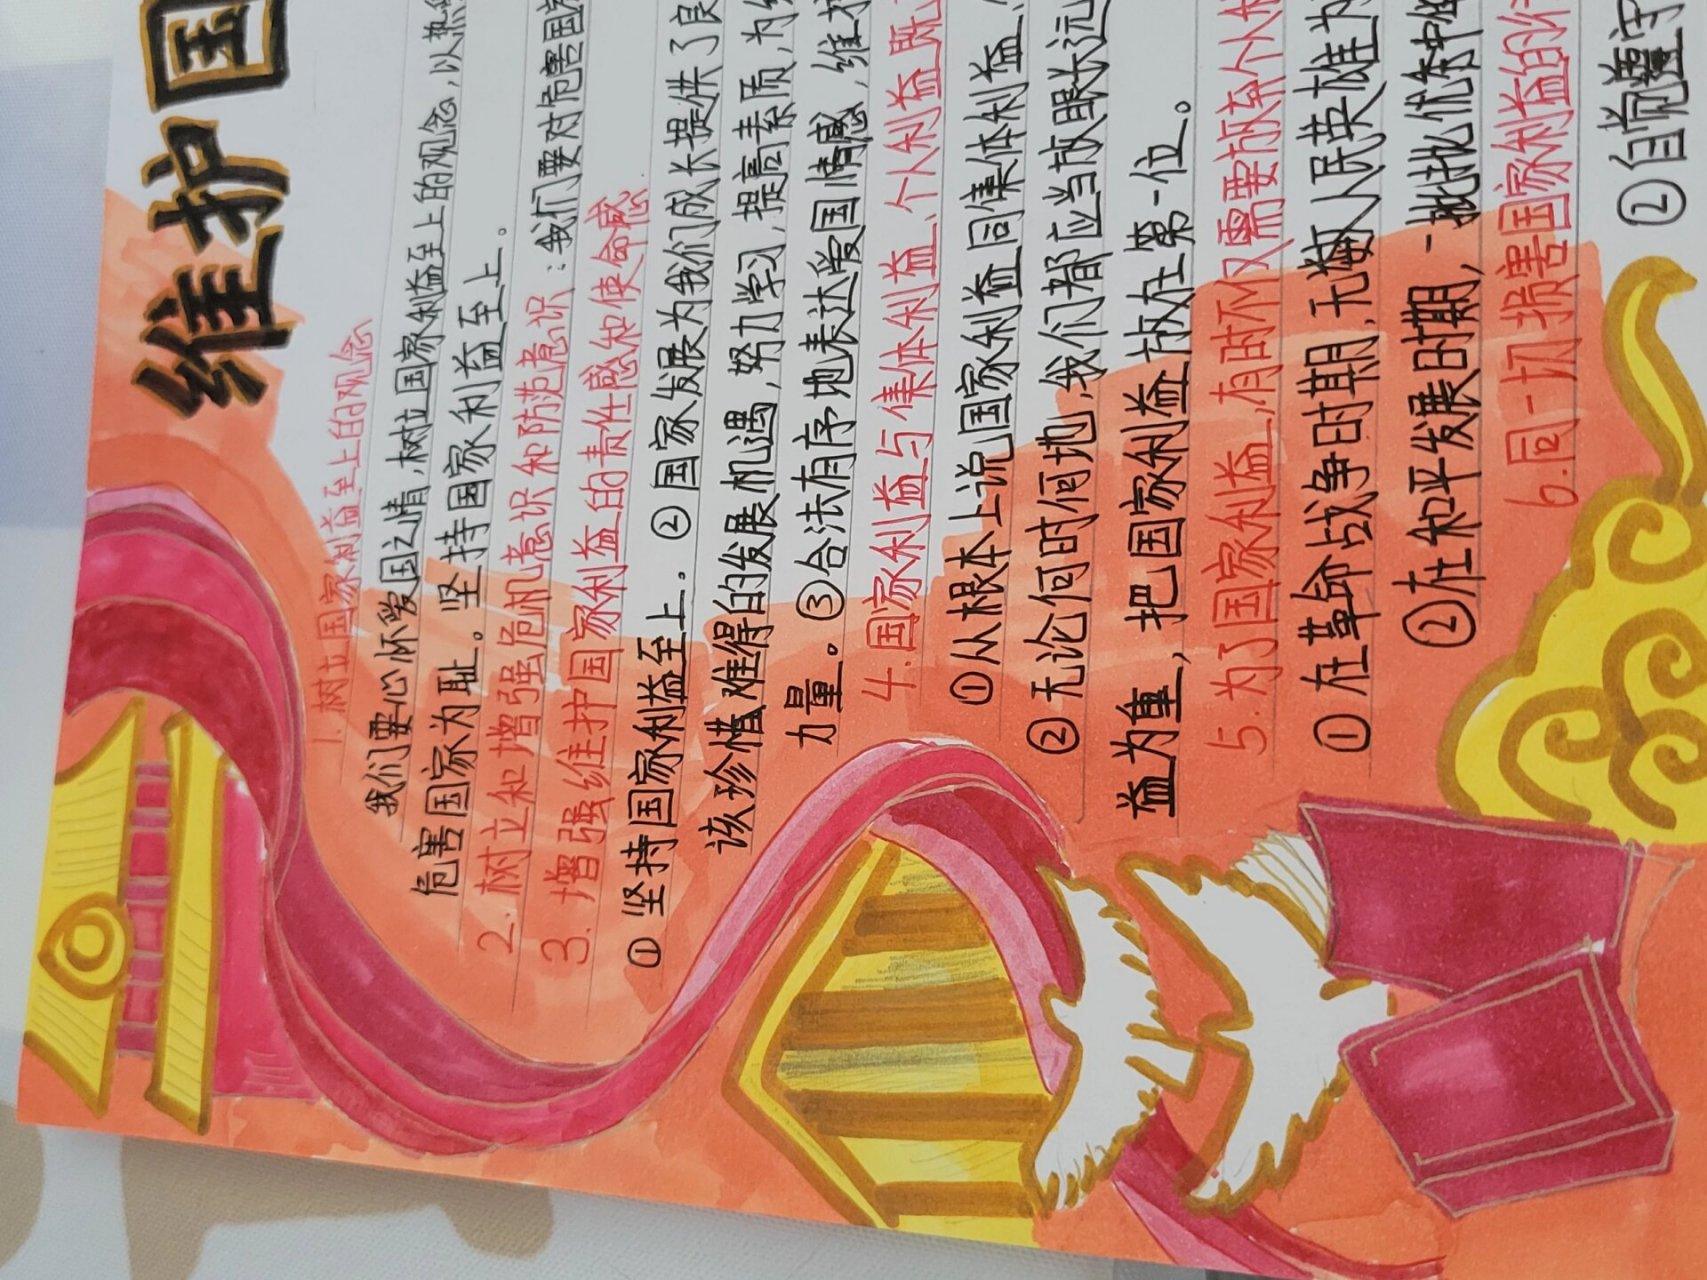 维护国
1.树立国家利益至上的观念
我们要心怀爱国之情,树立国家利益至上的观念,以热
危害国家为耻。坚持国家利益至上。
2.树立和增强危机意识和防范意识:我们要对危害国
3.增强维护国家利益的责任感和使命感
①坚持国家利益至上。②国家发展为我们成长提供了良
该珍惜难得的发展机遇,努力学习,提高素质,为
力量。③合法有序地表达爱国情感,维护
4.国家利益与集体利益、个人利益既
①从根本上说国家利益同集体利益、
②无论何时何地,我们都应当放眼长远
益为重,把国家利益放在第一位。
5.为了国家利益,有时不仅需要放弃个人
①在革命战争时期,无数人民英雄为
②在和平发展时期,一批批优秀中
6.同一切损害国家利益的
②自觉遵守